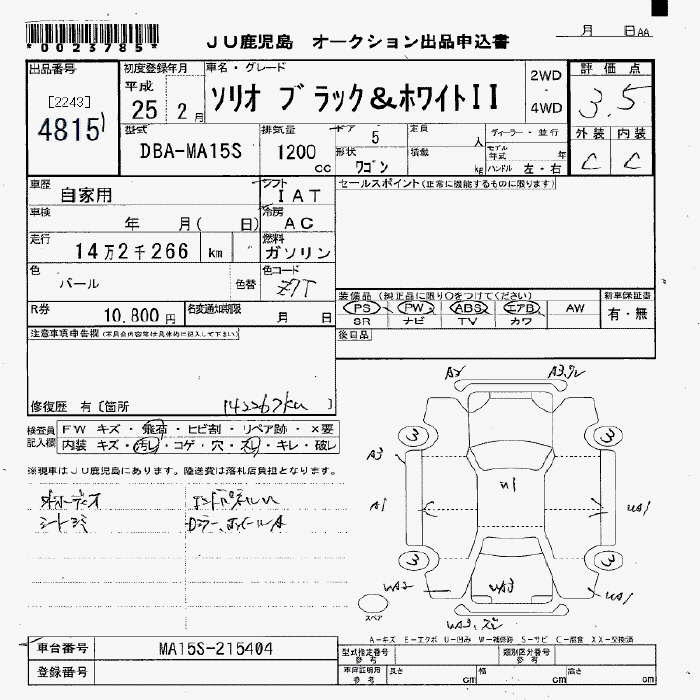 *0023785*
JU鹿児島 オークション出品申込書
月 日 AA
出品番号
[2243]
4815
初度登録年月
平成
25 2月
車名・グレード
ソリオ ブラック&ホワイトII
2WD
・
4WD
評価点
3.5
外装 内装
C C
型式
DBA-MA15S
排気量
1200 cc
ドア 5
形状 ワゴン
定員 人
積載 kg
ディーラー・並行
モデル年式 年
ハンドル 左・右
車歴
自家用
シフト
IAT
車検
年 月( 日)
冷房
AC
走行
14万2千266 km
燃料
ガソリン
色
パール
色替
色コード
Z7T
R券
10,800円
名変通知期限
月 日
セールスポイント(正常に機能するものに限ります)
装備品(純正品に限り○をつけてください)
PS PW ABS エアB AW
SR ナビ TV カワ
新車保証書
有・無
後日品
注意事項申告欄(不具合内容等は具体的に記入して下さい)
修復歴 有〔箇所 142267km 〕
検査員記入欄
FW キズ・飛石・ヒビ割・リペア跡・×要
内装 キズ・汚レ・コゲ・穴・スレ・キレ・破レ
※現車はJU鹿児島にあります。陸送費は落札店負担となります。
オーディオ
シートシミ
A2
A3
3 3
A3
U1
A1
UA1
3 3
UA2
UA3
UA1
スペア
A-キズ E-エクボ U-凹み W-補修跡 S-サビ C-腐食 XX-交換済
車台番号
MA15S-215404
登録番号
型式指定番号
参考
類別区分番号
参考
車両証明
参考
長さ cm
幅 cm
高さ cm